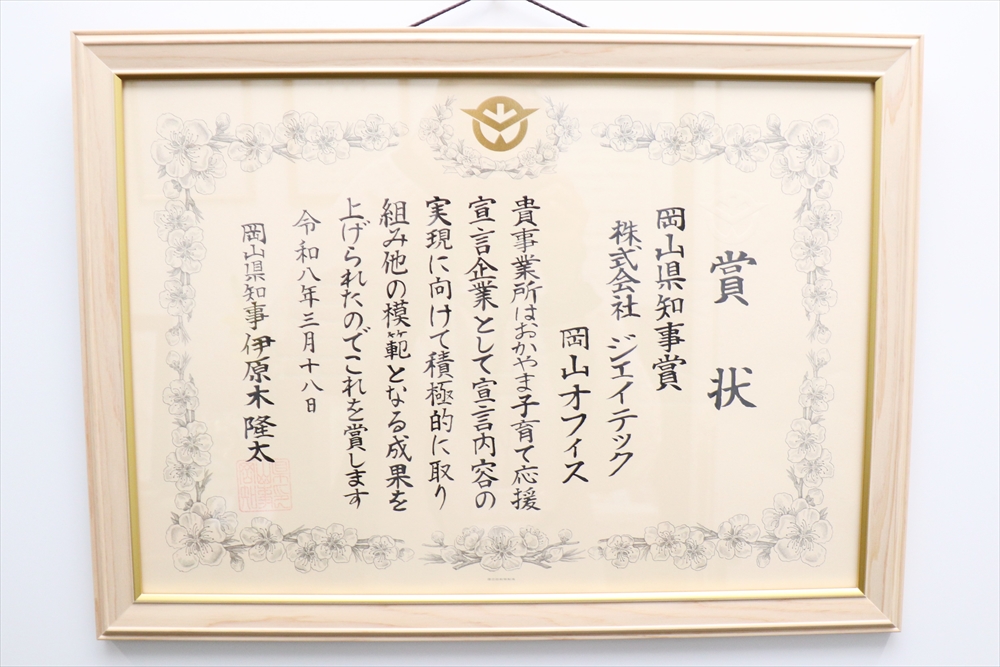 賞状
岡山県知事賞
株式会社 ジェイテック
岡山オフィス
貴事業所はおかやま子育て応援
宣言企業として宣言内容の
実現に向けて積極的に取り
組み他の模範となる成果を
上げられたのでこれを賞します
令和八年三月十八日
岡山県知事 伊原木隆太